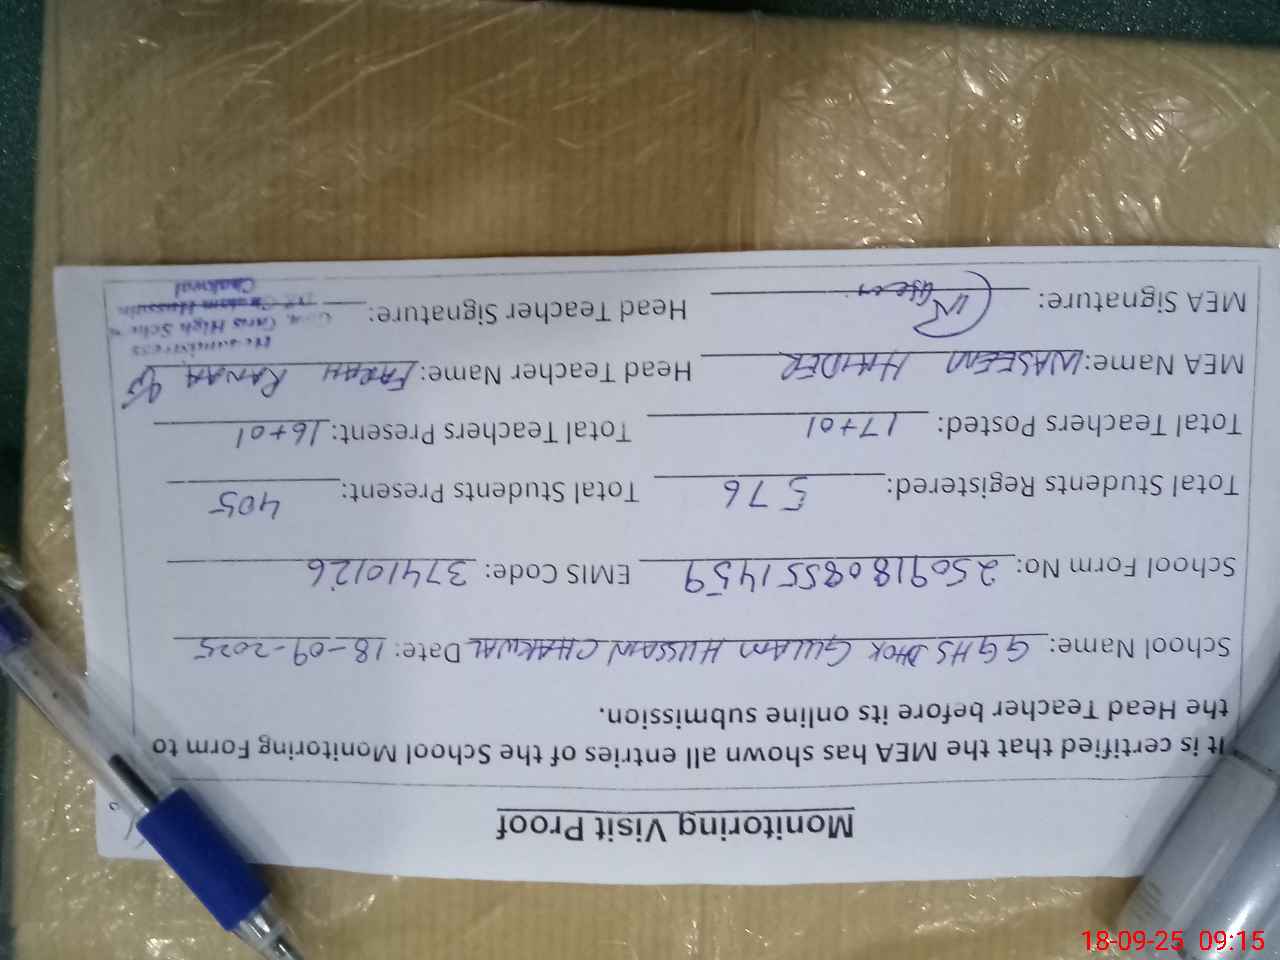 Monitoring Visit Proof
It is certified that the MEA has shown all entries of the School Monitoring Form to
the Head Teacher before its online submission.
School Name: GGHS DHOK GULAM HUSSAIN CHAKWAL Date: 18-09-2025
School Form No: 25091808551459 EMIS Code: 37410126
Total Students Registered: 576 Total Students Present: 405
Total Teachers Posted: 17+01 Total Teachers Present: 16+01
MEA Name: WASEEM HAIDER Head Teacher Name: FARAH RANAA
MEA Signature: Head Teacher Signature:
Girls High
Hussain
Chakwal
18-09-25 09:15